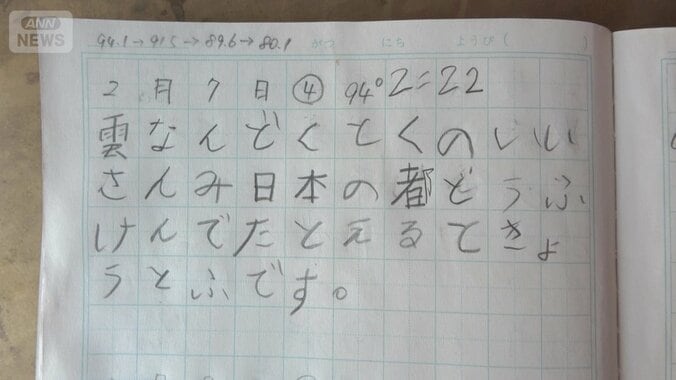 ANN NEWS
94.1→91.5→89.6→80.1 がつ にち ようび( )
2月7日④ 94°2=22
雲なんどくとくのいい
さんみ日本の都どうふ
けんでたとえるてきょ
うとふです。